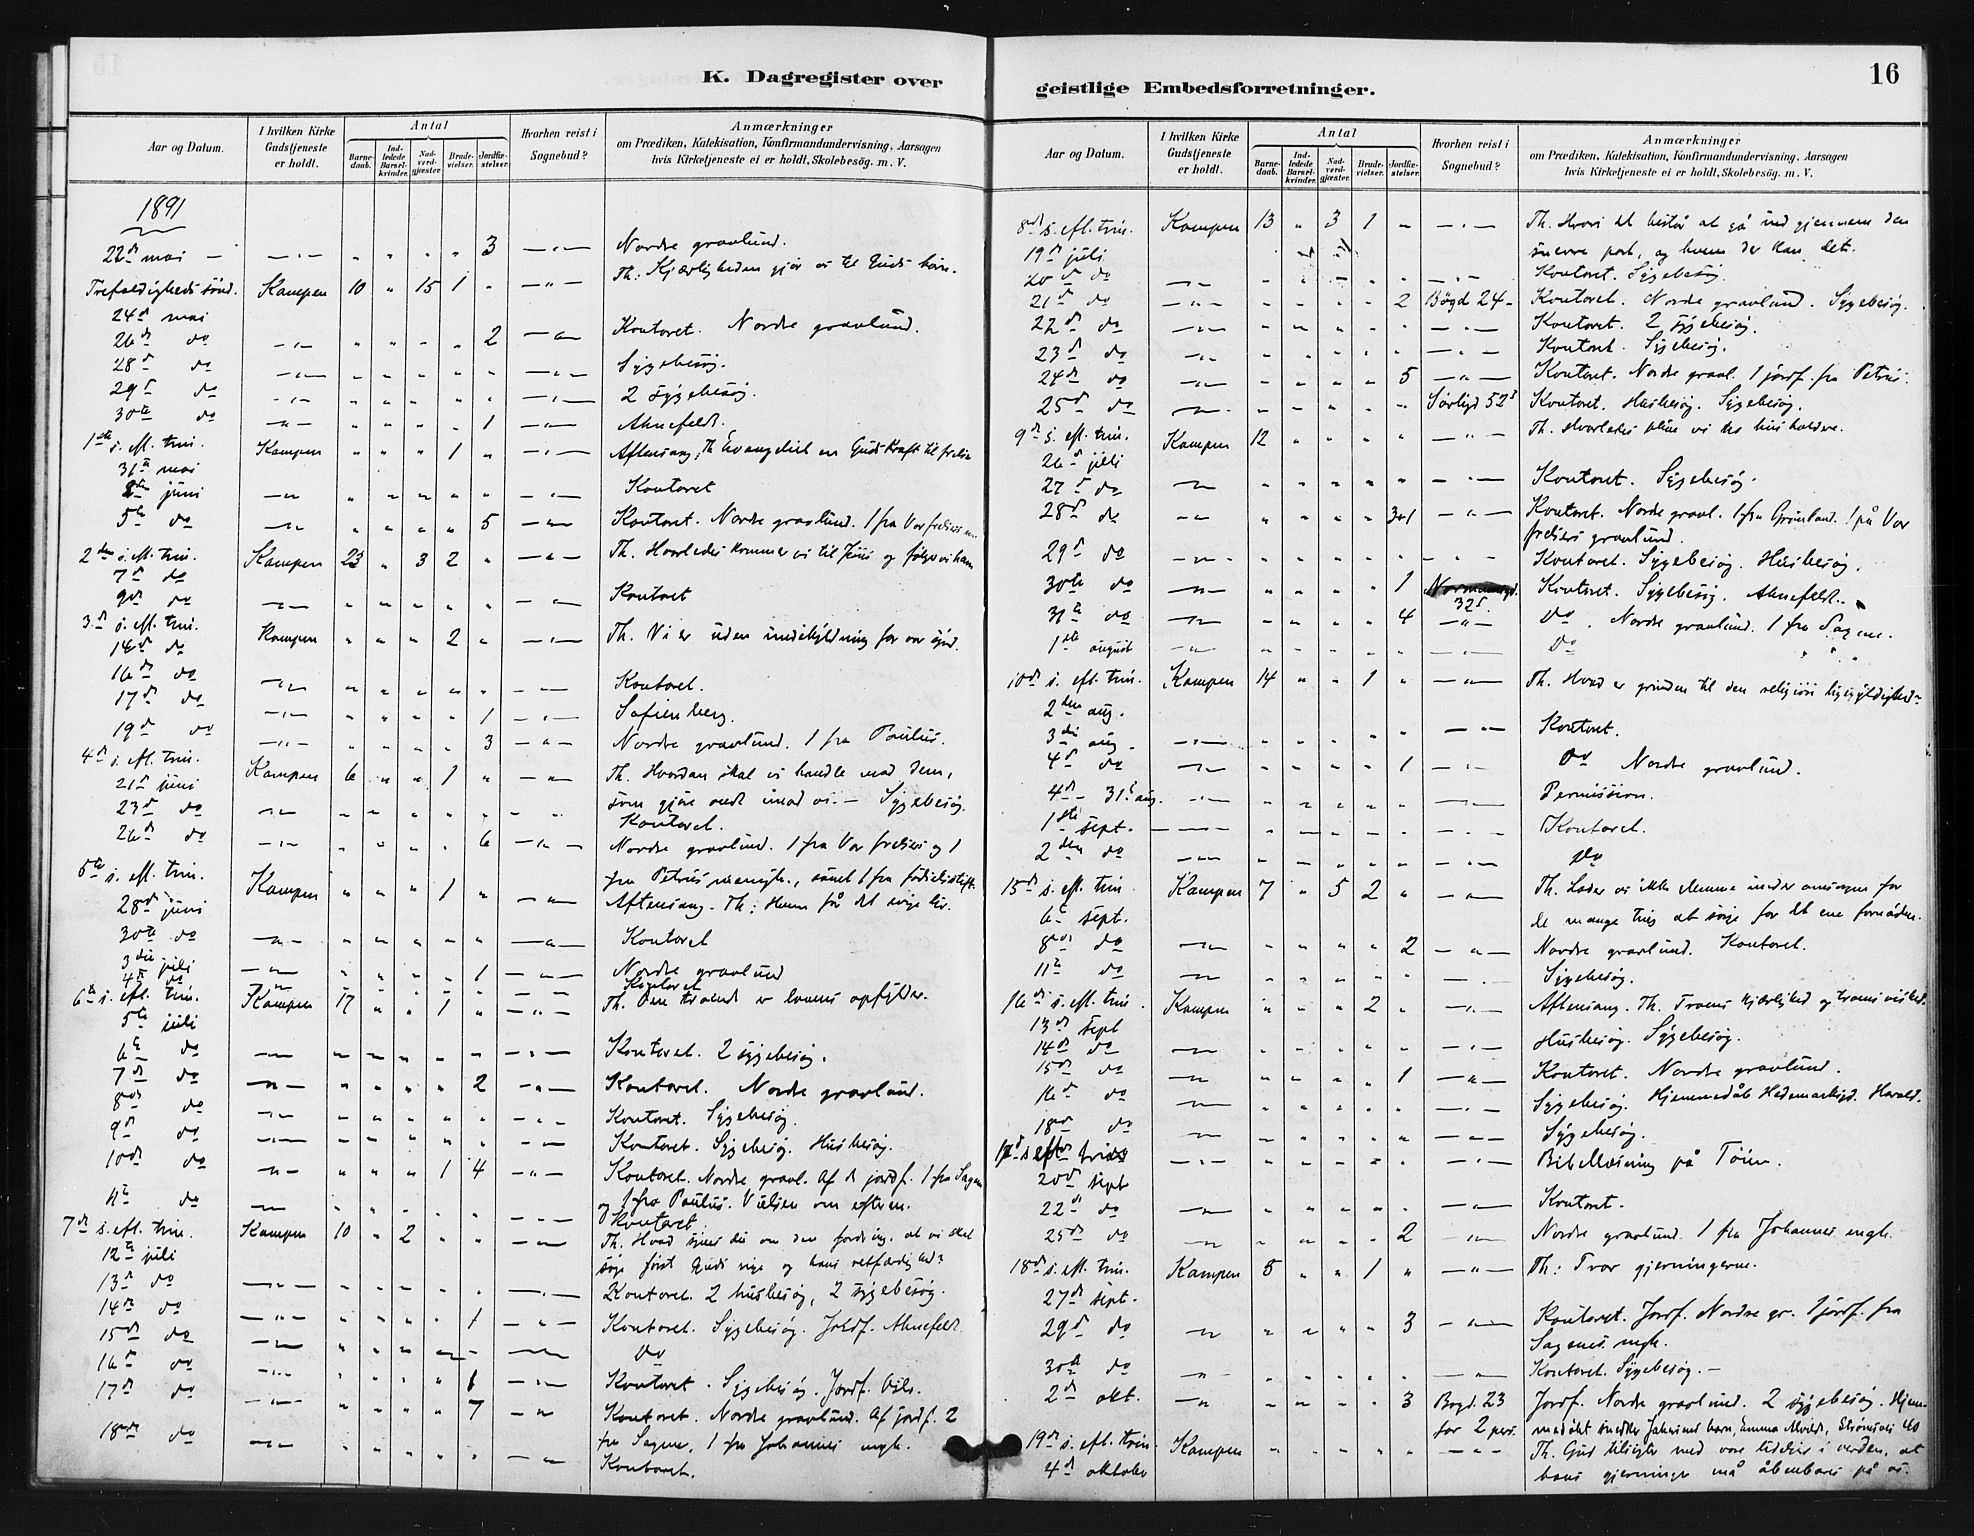 K. Dagregister over
Aar og Datum.
I hvilken Kirke Gudstjeneste er holdt.
Antal
Barnedaab.
Indledede Barselkvinder.
Nadverdgjæster.
Brudevielser.
Jordfæstelser.
Hvorhen reist i Sognebud?
Anmærkninger
om Prædiken, Katekisation, Konfirmandundervisning, Aarsagen
hvis Kirketjeneste ei er holdt, Skolebesög. m. V.
1891
22de mai 3 Nordre gravlund.
Trefoldigheds sönd. Kampen 10 " 15 1 " Th: Kjærligheden gjör os til Guds börn.
24de mai
26de do 2 Kontoret. Nordre gravlund.
28de do Sygebesög.
29de do 2 sygebesög.
30te do 1 Akersfeldt.
1ste s. eft. trin. Kampen " " " 1 " Aftensang, Th Evangeliet en Guds kraft til frelse
31te mai
2den juni Kontoret
5te do 5 Kontoret. Nordre gravlund. 1 fra Vor frelsers
2den s. eft. trin. Kampen 23 " 3 2 " Th. Hvorledes kommer vi til Jesus og følger vi ham
7de do
9de do Kontoret
3de s. eft. trin. Kampen " " " 2 " Th. Vi er uden undskyldning for vor synd.
14de do
16de do Kontoret.
17de do 1 Sofienberg.
19de do 3 Nordre gravlund. 1 fra Paulus.
4de s. eft. trin. Kampen 6 " " 1 " Th. Hvordan skal vi handle mod dem,
21de juni som gjöre ondt imod os. – Sygebesög.
23de do Kontoret.
26de do 6 Nordre gravlund. 1 fra Vor frelsers og 1
fra Petrus menigh., samt 1 fra födselsstift.
5te s. eft. trin. Kampen " " " 1 " Aftensang. Th: Hvem får det evige liv.
28de juni
30te do Kontoret
3die juli 1 Nordre gravlund
4de do Kontoret
6te s. eft. trin. Kampen 17 " " 1 " Th. Den troende er lovens opfylder.
5te juli
6te do Kontoret. 2 sygebesög.
7de do 2 Kontoret. Nordre gravlund.
8de do Kontoret. Sygebesög.
9de do Kontoret. Sygebesög. Husbesög.
10de do 1 4 Kontoret. Nordre gravl. Af de jordf. 1 fra Sagene
og 1 fra Paulus. Vielsen om efterm.
11te do Kontoret
7de s. eft. trin. Kampen 10 " 2 " " Th. Hvad synes du om den fordring, at vi skal
12te juli söge först Guds rige og hans retfærdighed?
13de do Kontoret. 2 husbesög, 2 sygebesög.
14de do 1 Kontoret. Sygebesög. Jordf. Akersfeldt.
15de do do
16de do 1 Kontoret. Sygebesög. Jordf. Oslo.
17de do 7 Kontoret. Nordre gravlund. Af jordf. 2
fra Sagene, 1 fra Johannes mgh.
18de do Kontoret.
geistlige Embedsforretninger.
16
Aar og Datum.
I hvilken Kirke Gudstjeneste er holdt.
Antal
Barnedaab.
Indledede Barselkvinder.
Nadverdgjæster.
Brudevielser.
Jordfæstelser.
Hvorhen reist i Sognebud?
Anmærkninger
om Prædiken, Katekisation, Konfirmandundervisning, Aarsagen
hvis Kirketjeneste ei er holdt, Skolebesög. m. V.
8de s. eft. trin. Kampen 13 " 3 1 " Th. Hvori det består at gå ind gjennem den
19de juli snevre port, og hvem der kan det.
20de do Kontoret. Sygebesög.
21de do 2 Bögd 24 Kontoret. Nordre gravlund. Sygebesög.
22de do Kontoret. 2 sygebesög.
23de do Kontoret. Sygebesög.
24de do 5 Kontoret. Nordre gravl. 1 jordf. fra Petrus.
25de do Sörligd 52 Kontoret. Husbesög. Sygebesög.
9de s. eft. trin. Kampen 12 Th. Hvorledes blive vi tro husholdere.
26de juli
27de do Kontoret. Sygebesög.
28de do 3+1 Kontoret. Nordre gravl. 1 fra Grönland. 1 på Vor
frelsers gravlund.
29de do Kontoret. Sygebesög. Husbesög.
30te do 1 32 Kontoret. Sygebesög. Akersfeldt.
31te do 4 do. Nordre gravlund. 1 fra Sagene.
1ste august do
10de s. eft. trin. Kampen 14 " " 1 " Th. Hvad er grunden til den religiöse ligegyldighed?
2den aug.
3die aug. Kontoret.
4de do 1 do Nordre gravlund.
4de – 31te aug. Permission.
1ste sept. Kontoret.
2den do do
15de s. eft. trin Kampen 7 " 5 2 " Th. Lader os ikke glemme under omsorgen for
6te sept. de mange ting at sörge for det ene fornödne.
8de do 2 Nordre gravlund. Kontoret.
11te do Sygebesög.
16de s. eft. trin. Kampen " " " 2 " Aftensang. Th. Troens kjærlighed og troens vished.
13de sept
14de do Husbesög. Sygebesög.
15de do 1 Kontoret. Nordre gravlund.
16de do Sygebesög. Hjemmedåb Hedemarksgd. Harald.
18de do Sygebesög.
17de s eft trin Bibellæsning på Töien.
20de sept
22de do Kontoret.
25de do 2 Nordre gravlund. 1 fra Johannes mgh.
18de s. eft. trin. Kampen 5 " " 1 " Th: Tror gjerningerne.
27de sept.
29de do 3 Kontoret. Jordf. Nordre gr. 1 jordf. fra
Sagenes mgh.
30te do Kontoret. Sygebesög. –
2de okt. 3 Bögd. 23 Jordf. Nordre gravlund. 2 sygebesög. Hjem-
for 2 pers. medöbt snedker Johnsens barn, Emma Alvilde, Strömsvei 40
19de s. eft. trin. Kampen Th. Gud tilsigter med vore lidelser i verden, at
4de oktober hans gjerninger må åbenbares på os.